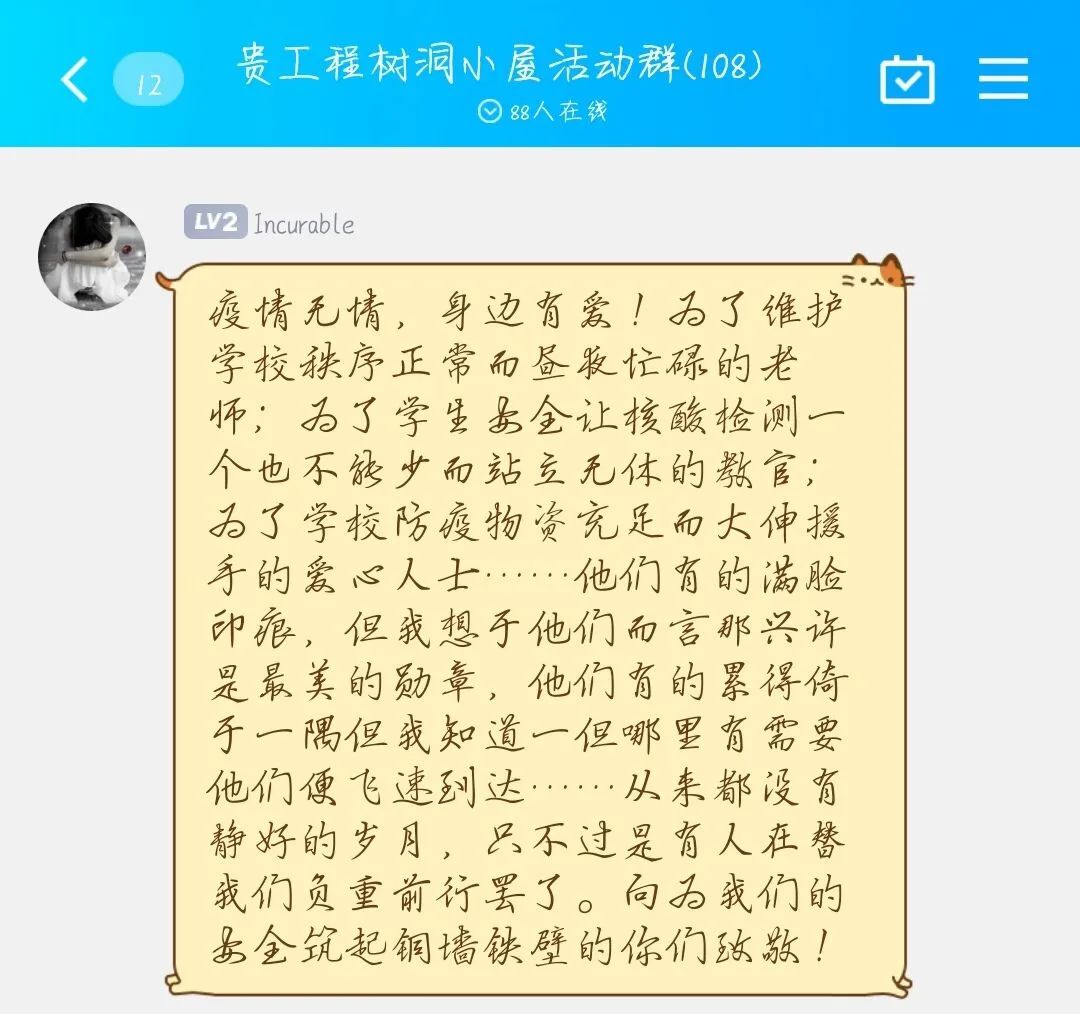 贵工程树洞小屋活动群(108)
12
88人在线
LV2 Incurable
疫情无情，身边有爱！为了维护
学校秩序正常而昼夜忙碌的老
师；为了学生安全让核酸检测一
个也不能少而站立无休的教官；
为了学校防疫物资充足而大伸援
手的爱心人士……他们有的满脸
印痕，但我想于他们而言那兴许
是最美的勋章，他们有的累得倚
于一隅但我知道一但哪里有需要
他们便飞速到达……从来都没有
静好的岁月，只不过是有人在替
我们负重前行罢了。向为我们的
安全筑起铜墙铁壁的你们致敬！